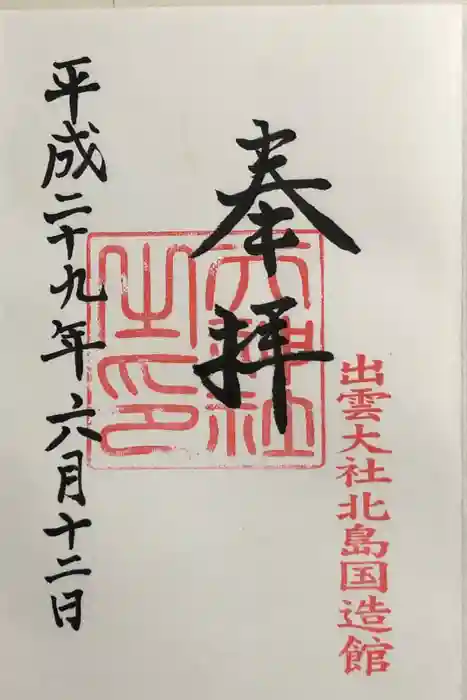 出雲大社北島国造館
奉拝
大神社之印
平成二十九年六月十二日